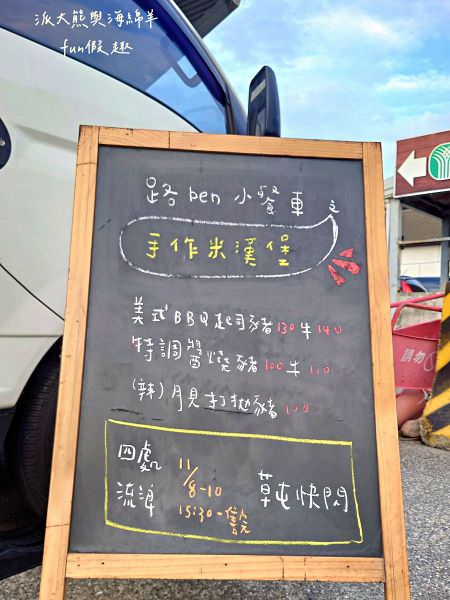 派大熊與海綿羊
fun假趣
路ben小餐車 之
手作米漢堡
美式BBQ起司豬130牛140
特調醬燒豬100牛110
(辣)月見打拋豬100
四處 11/8-10
流浪 15:30-售完
草屯快閃
請勿